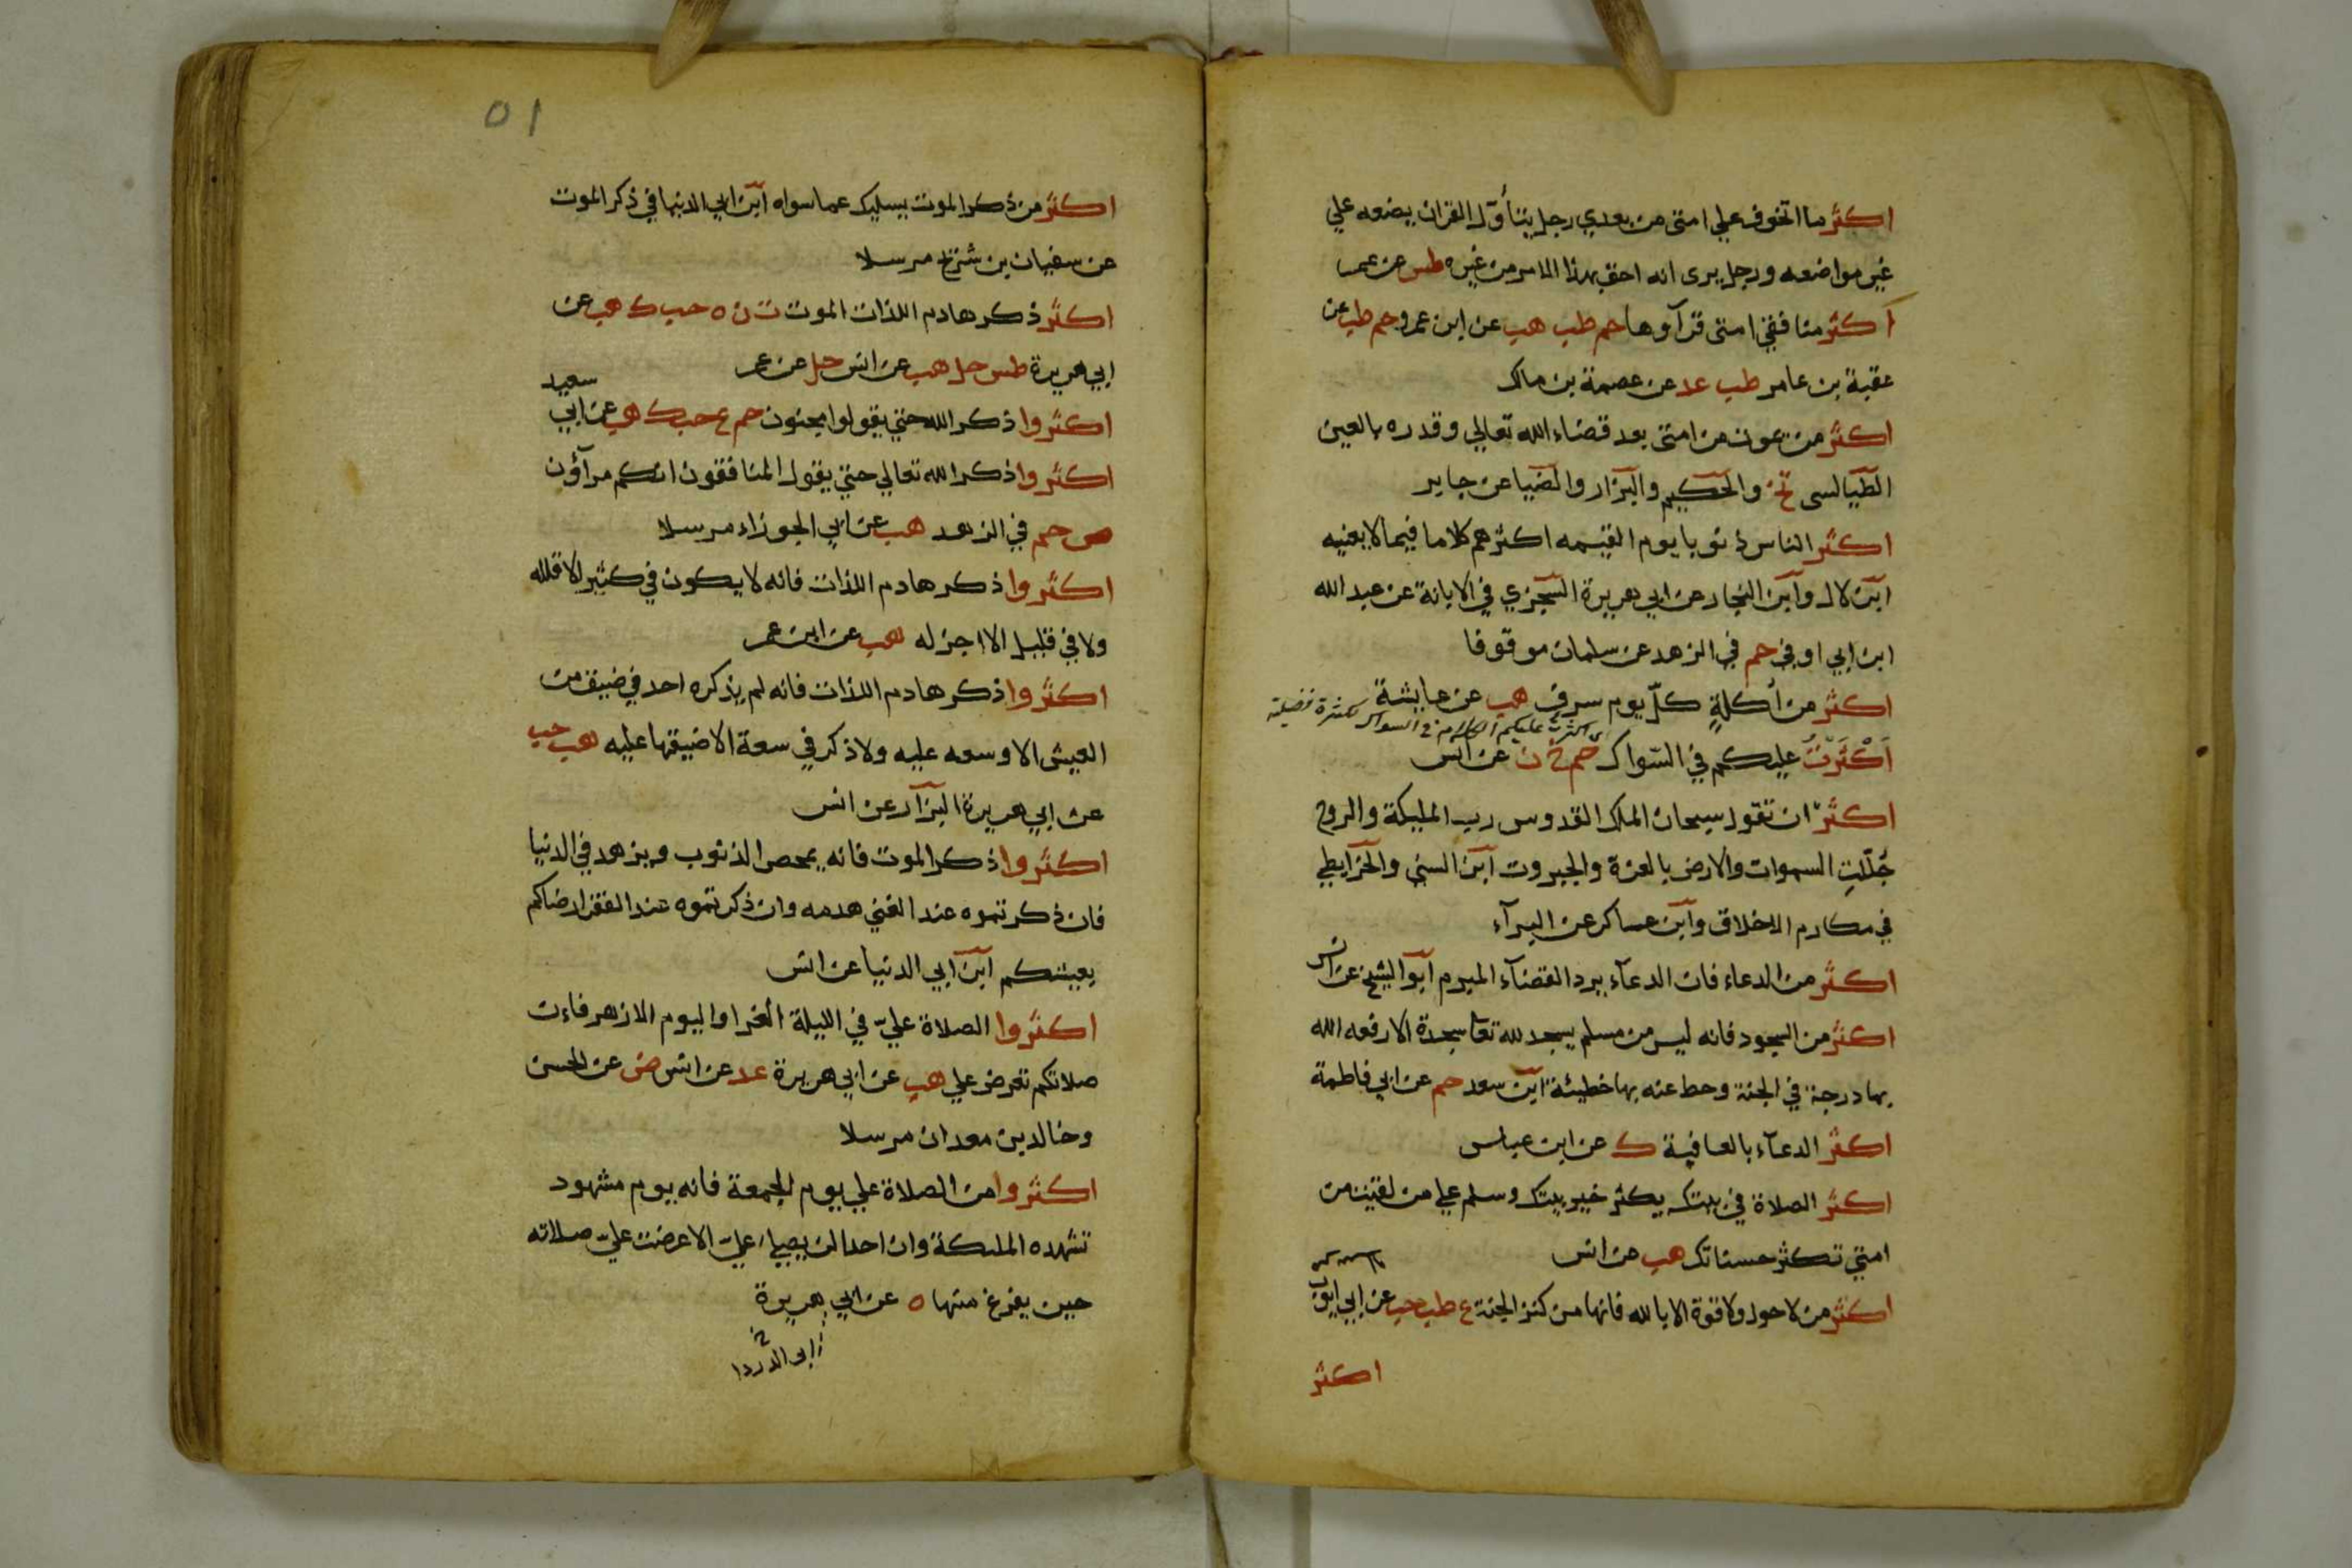 اكثر ما اتخوف علي امتي من بعدي رجل يتأول القران يضعه علي
غير مواضعه ورجل يرى انه احق بهذا الامر من غيره طس عن عمر
اكثر منافقي امتي قرآوها حم طب هب عن ابن عمرو حم طب عن
عقبة بن عامر طب عد عن عصمة بن مالك
اكثر من يموت من امتي بعد قضاء الله تعالي وقدره بالعين
الطيالسى تخ والحكيم والبزار والضيا عن جابر
اكثر الناس ذنوبا يوم القيمه اكثرهم كلاما فيما لا يعنيه
ابن لال وابن النجار عن ابي هريرة السجزي في الابانة عن عبد الله
ابن ابي اوفي حم في الزهد عن سلمان موقوفا
اكثر من أكلةٍ كلّ يوم سرف هب عن عايشة
اكثرت عليكم الكلام في السواك لكثرة فضيلته
اَكْثَرْتُ عليكم في السّواك حم خ ن عن انس
اكثرْ ان تقول سبحان الملك القدوس رب المليكة والروح
جُلّلتِ السموات والارض بالعزة والجبروت ابن السني والخرايطي
في مكارم الاخلاق وابن عساكر عن البرآء
اكثر من الدعاء فان الدعآء يرد القضآء المبرم ابو الشيخ عن انس
اكثر من السجود فانه ليس من مسلم يسجد لله تعا سجدة الا رفعه الله
بها درجة في الجنة وحط عنه بها خطيئة ابن سعد حم عن ابي فاطمة
اكثر الدعآء بالعافية ك عن ابن عباس
اكثر الصلاة في بيتك يكثر خير بيتك وسلم علي من لقيت من
امتي تكثر حسناتك هب عن انس
اكثر من لا حول ولا قوة الا بالله فانها من كنز الجنة ع طب حب عن ابي ايوب
اكثر
٥١
اكثر من ذكر الموت يسليك عما سواه ابن ابي الدنيا في ذكر الموت
عن سفيان بن شريح مرسلا
اكثر ذكر هادم اللذات الموت ت ن ه حب ك هب عن
ابي هريرة طس حل هب عن انس حل عن عمر
سعيد
اكثروا ذكر الله حتي يقولوا مجنون حم ع حب ك هب عن ابي
اكثروا ذكر الله تعالي حتي يقول المنافقون انكم مرآؤن
ص حم في الزهد هب عن ابي الجوزاء مرسلا
اكثروا ذكر هادم اللذات فانه لا يكون في كثير الا قلله
ولا في قليل الا اجزله هب عن ابن عمر
اكثروا ذكر هادم اللذات فانه لم يذكره احد في ضيق من
العيش الا وسعه عليه ولا ذكر في سعة الا ضيقها عليه هب حب
عن ابي هريرة البزآر عن انس
اكثروا ذكر الموت فانه يمحص الذنوب ويزهد في الدنيا
فان ذكرتموه عند الغني هدمه وان ذكرتموه عند الفقر ارضاكم
بعيشكم ابن ابي الدنيا عن انس
اكثروا الصلاة عليّ في الليلة الغرا واليوم الازهر فان
صلاتكم تعرض علي هب عن ابي هريرة عد عن انس ص عن الحسن
وخالد بن معدان مرسلا
اكثروا من الصلاة علي يوم الجمعة فانه يوم مشهود
تشهده المليكة وان احدا لن يصلي عليّ الا عرضت عليّ صلاته
حين يفرغ منها ه عن ابي هريرة
ابي الدردا